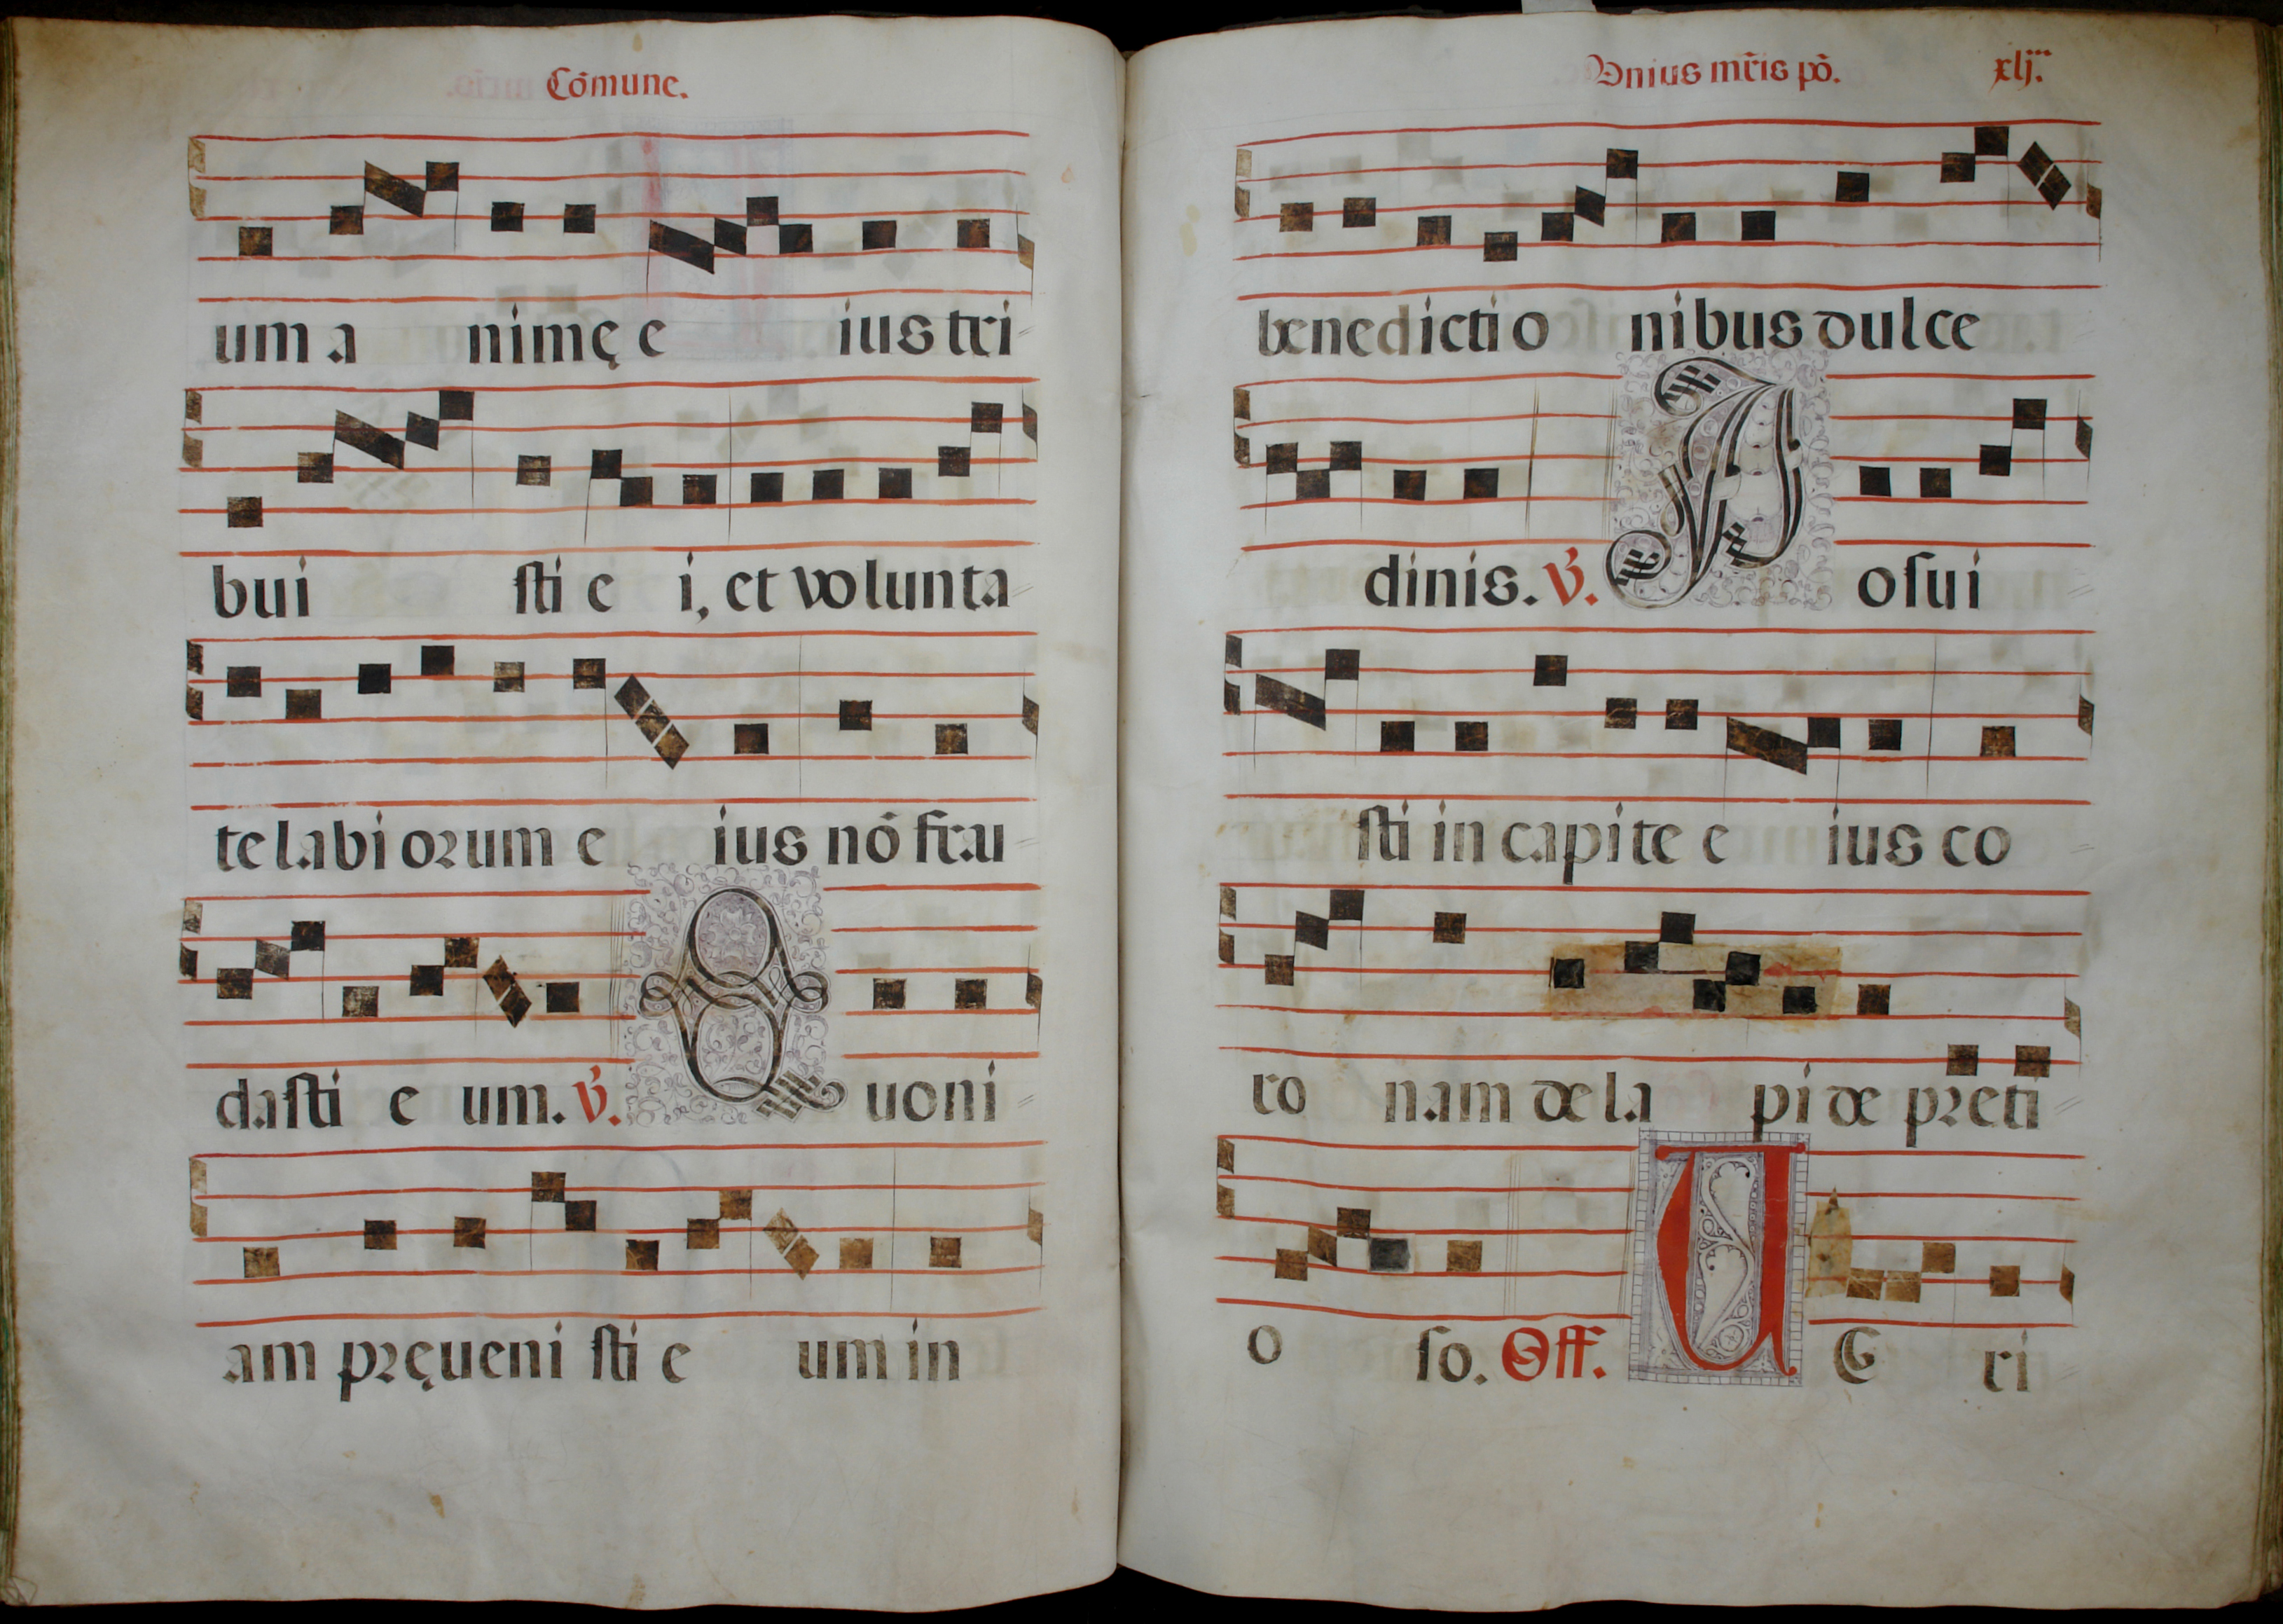 Cõmune.
um a nimę e ius tri
bui sti e i, et volunta
te labiorum e ius nõ frau
dasti e um. V̄. Q uoni
am pręueni sti e um in
Vnius mr̃is põ. xlj.
benedictio nibus dulce
dinis. V̄. P osui
sti in capite e ius co
ro nam de la pi de preti
o so. Off. U E ri